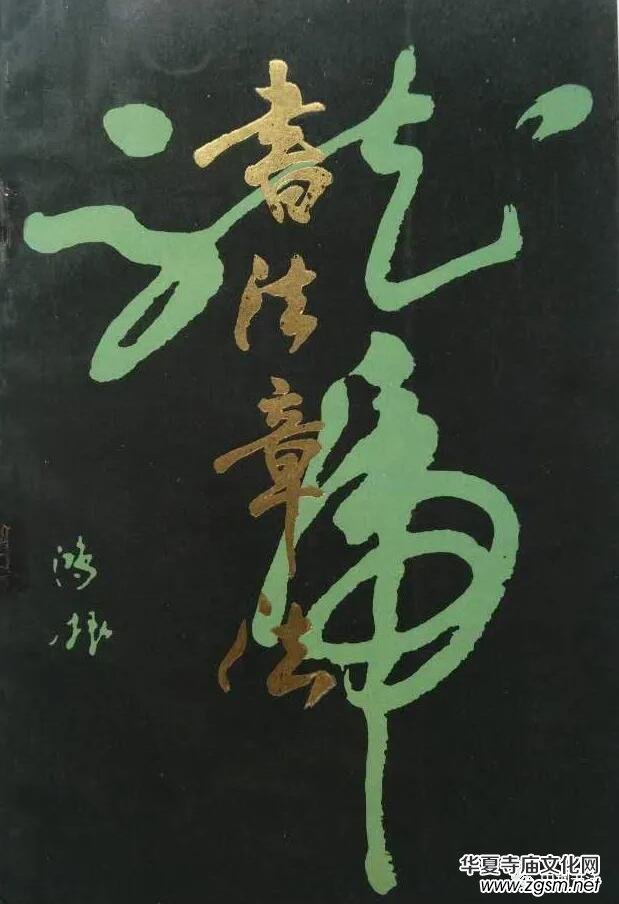 龍虎
書法章法
鸿
华夏寺庙文化网
www.zgsm.net